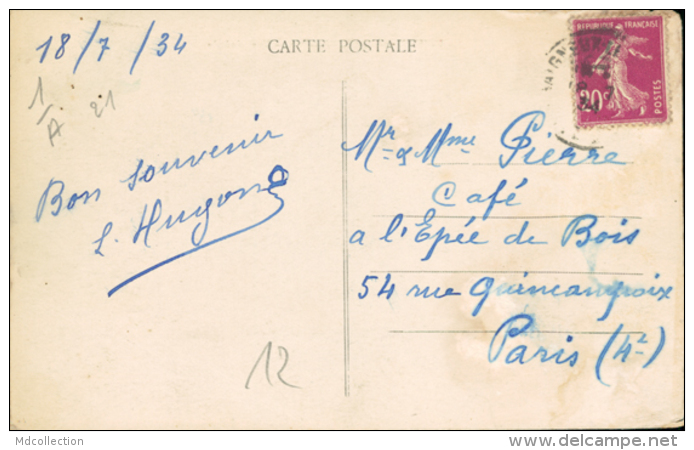 18/7/34
CARTE POSTALE
REPUBLIQUE FRANÇAISE
20c
POSTES
1/A 21
Bon souvenir
Mr & Mme Pierre
Café
a l'Epée de Bois
54 rue Quincampoix
Paris (4e)
12
Mdcollection
www.delcampe.net